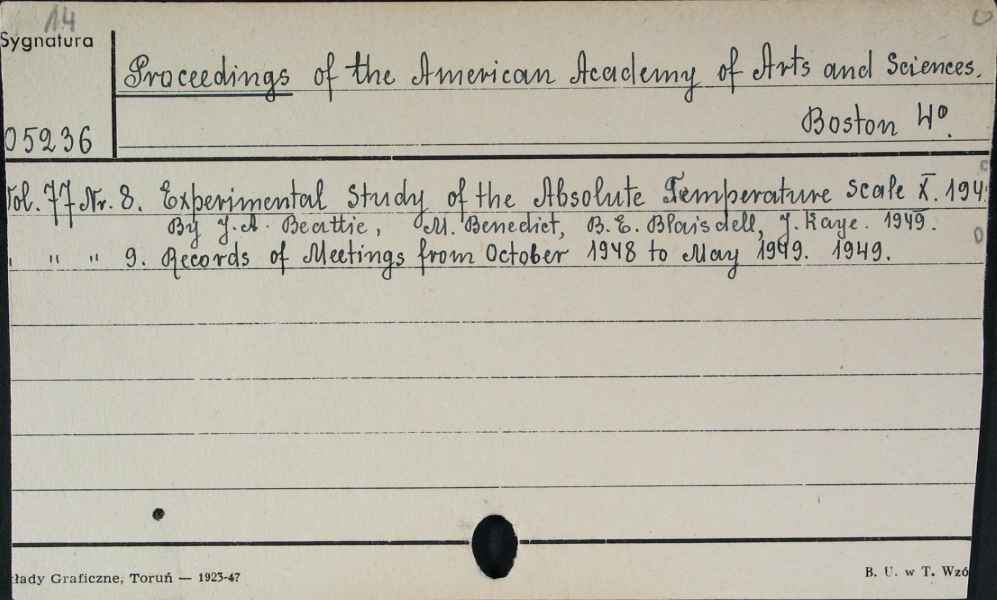 14
Sygnatura
Proceedings of the American Academy of Arts and Sciences.
Boston 4º.
05236
Vol. 77 Nr. 8. Experimental Study of the Absolute Temperature Scale X. 194
By J. A. Beattie, M. Benedict, B. E. Blaisdell, J. Kaye. 1949.
" " " 9. Records of Meetings from October 1948 to May 1949. 1949.
łady Graficzne, Toruń — 1923-47
B. U. w T. Wzó